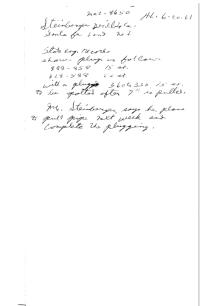 Hd. 6-20-61
Steinberger Drilling Co.
Santa Fe Land No 1
State eng. records
show plugs as follow
888-858 15 sx.
618-588
with a plug 360 & 330 15 sx.
to be spotted after 7" is pulled.
Mr. Steinberger says he plans
to pull pipe next week and
complete the plugging.